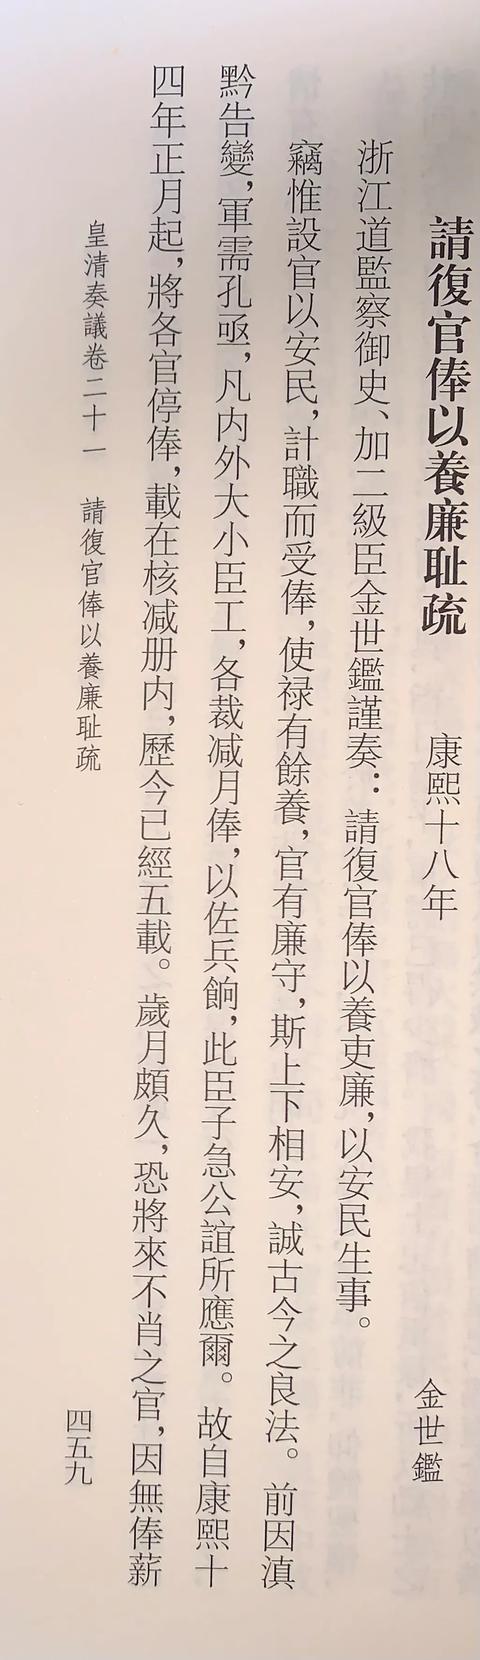 請復官俸以養廉耻疏　康熙十八年　金世鑑
浙江道監察御史、加二級臣金世鑑謹奏：請復官俸以養吏廉，以安民生事。
竊惟設官以安民，計職而受俸，使禄有餘養，官有廉守，斯上下相安，誠古今之良法。前因滇
黔告變，軍需孔亟，凡内外大小臣工，各裁减月俸，以佐兵餉，此臣子急公誼所應爾。故自康熙十
四年正月起，將各官停俸，載在核减册内，歷今已經五載。歲月頗久，恐將來不肖之官，因無俸薪
皇清奏議卷二十一　請復官俸以養廉耻疏
四五九